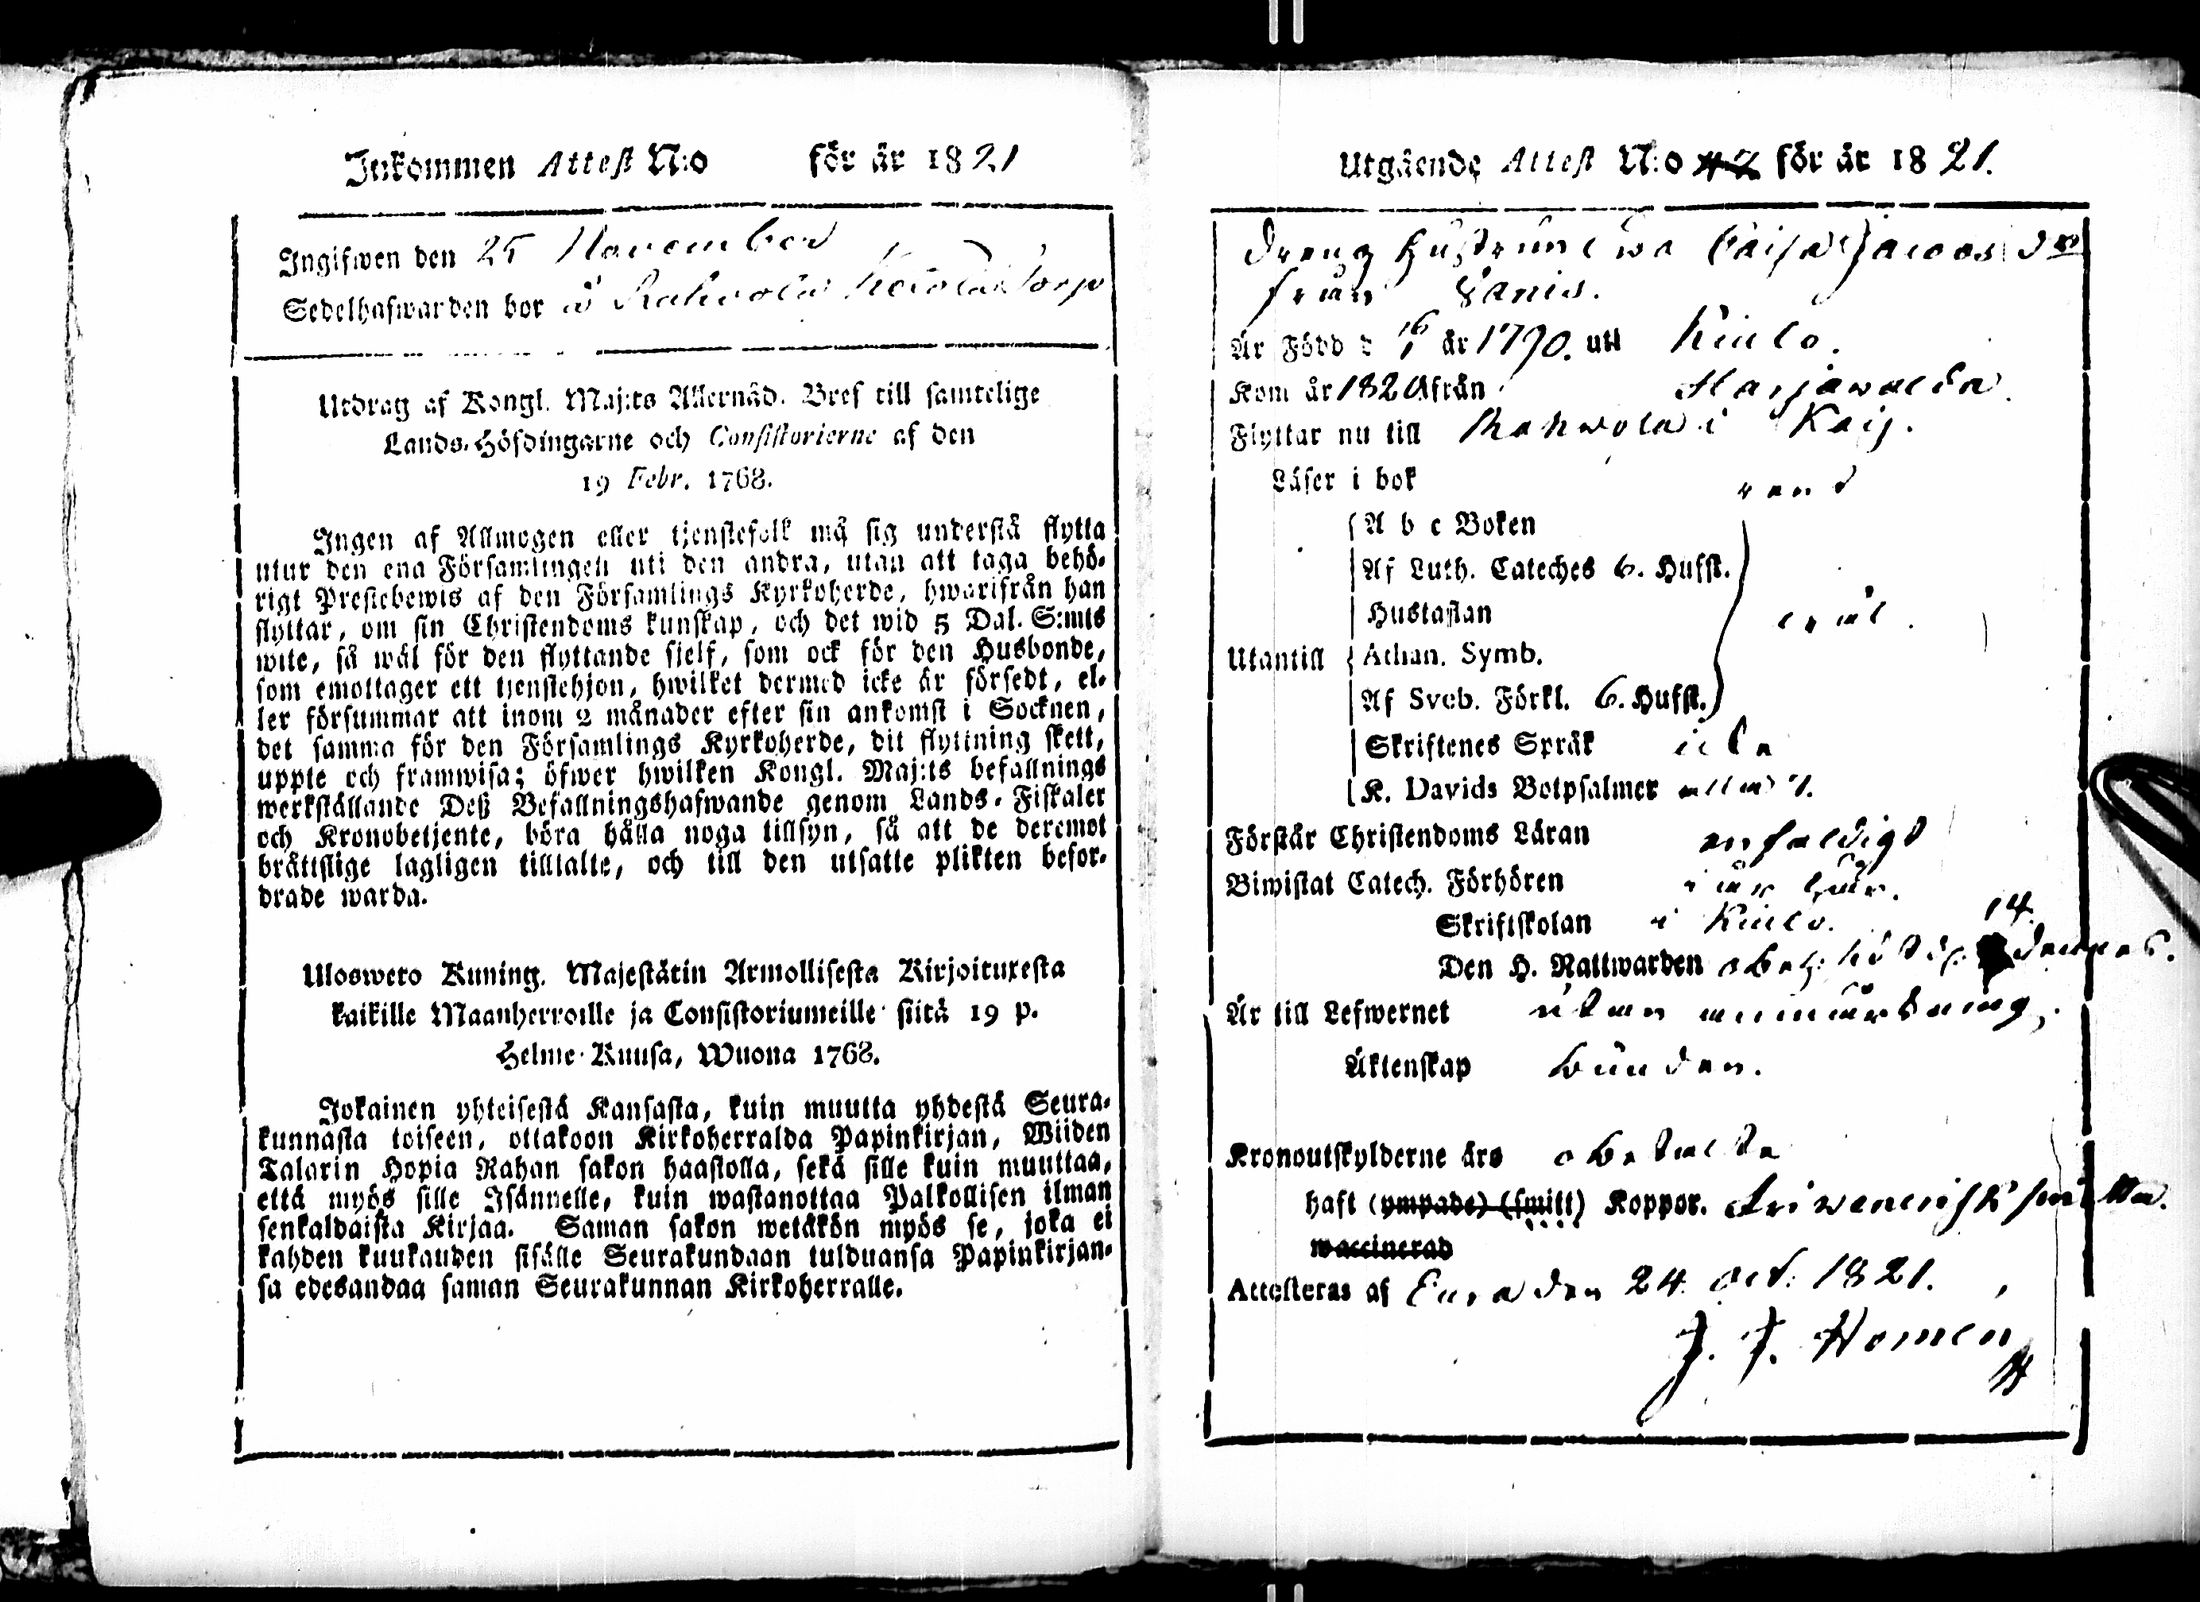 Inkommen Attest N:o för år 1821
Ingifwen den 25 November
Sedelhafwarden bor å Rahvola Torp
Utdrag af Kongl. Maj:ts Allernåd. Bref till samtelige
Lands-Höfdingarne och Consistorierne af den
19 Febr. 1768.
Ingen af Allmogen eller tjenstefolk må sig understå flytta
utur den ena Församlingen uti den andra, utan att taga behö-
rigt Prestebewis af den Församlings Kyrkoherde, hwarifrån han
flyttar, om sin Christendoms kunskap, och det wid 5 Dal. S:mts
wite, så wäl för den flyttande sjelf, som ock för den Husbonde,
som emottager ett tjenstehjon, hwilket dermed icke är försedt, el-
ler försummar att inom 2 månader efter sin ankomst i Socknen,
det samma för den Församlings Kyrkoherde, dit flyttning skett,
uppte och framwisa; öfwer hwilken Kongl. Maj:ts befallnings
werkställande Deß Befallningshafwande genom Lands-Fiskaler
och Kronobetjente, böra hålla noga tillsyn, så att de deremot
brättslige lagligen tilltalte, och till den utsatte plikten befor-
drade warda.
Ulosweto Kuning. Majestätin Armollisesta Kirjoituxesta
kaikille Maanherroille ja Consistoriumeille siitä 19 p.
Helme-Kuusa, Wuona 1768.
Jokainen yhteisestä Kansasta, kuin muutta yhdestä Seura-
kunnasta toiseen, ottakoon Kirkoherralda Papinkirjan, Wiiden
Talarin Hopia Rahan sakon haastolla, sekä sille kuin muuttaa,
että myös sille Isännelle, kuin wastanottaa Palkollisen ilman
senkaldaista Kirjaa. Saman sakon wetäkön myös se, joka ei
kahden kuukauden sisälle Seurakundaan tulduansa Papinkirjan-
sa edesandaa saman Seurakunnan Kirkoherralle.
Utgående Attest N:o 42 för år 1821.
Dreng Hustrun Ewa Caisa Jacobs dr
från Lanis.
Är Född d 16/1 år 1790. utt Kiulo.
Kom år 1820 från Harjawalda.
Flyttar nu till Rahwola i
Läser i bok rent
A b c Boken
Af Luth. Cateches 6. Hufst.
Hustaflan
Utantill Athan. Symb.
Af Sveb. Förkl. 6. Hufst.
Skriftenes Språk icke
K. Davids Botpsalmer alla 7.
Förstår Christendoms Läran enfaldigt
Biwistat Catech. Förhören i år här.
Skriftskolan i Kiulo.
14
Den H. Nattwarden dennes.
Är till Lefwernet utan anmärkning.
Äktenskap bunden.
Kronoutskylderne äro obetalte
haft (ympade) (smitt) Koppor. smitta.
waccinerad
Attesteras af Eura den 24. Oct: 1821.